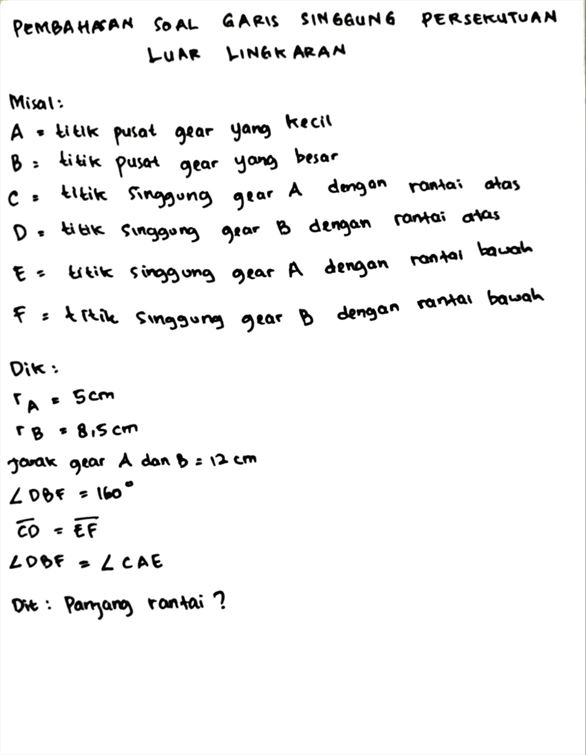 PEMBAHASAN SOAL GARIS SINGGUNG PERSEKUTUAN
LUAR LINGKARAN
Misal:
A = titik pusat gear yang kecil
B = titik pusat gear yang besar
C = titik singgung gear A dengan rantai atas
D = titik singgung gear B dengan rantai atas
E = titik singgung gear A dengan rantai bawah
F = titik singgung gear B dengan rantai bawah
Dik:
r A = 5 cm
r B = 8,5 cm
jarak gear A dan B = 12 cm
∠DBF = 160°
C̅D̅ = E̅F̅
∠DBF = ∠CAE
Dit : Panjang rantai ?